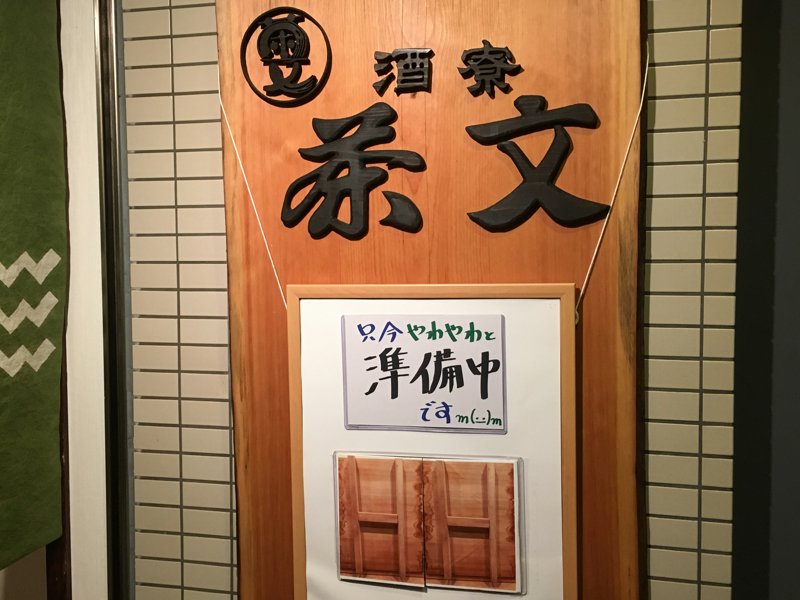 酒寮
茶文
只今やわやわと
準備中
です m(_ _)m